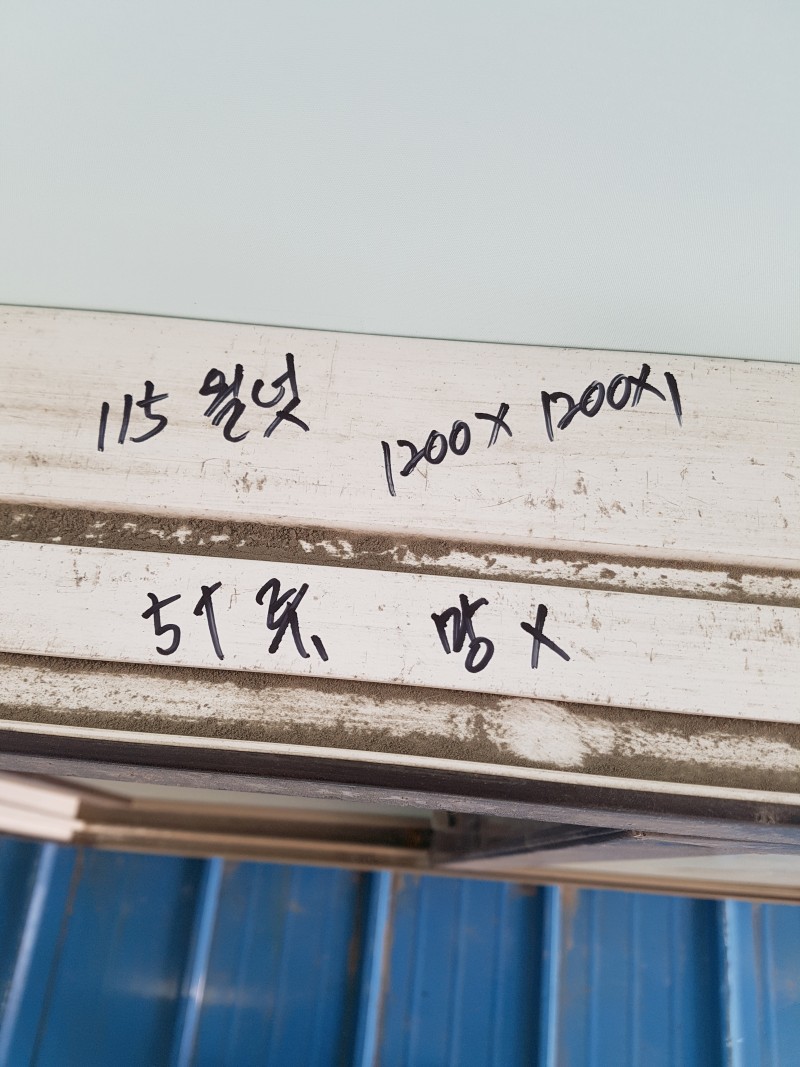 115 월넛 1200 X 1200 X 1
5T 투 망 X